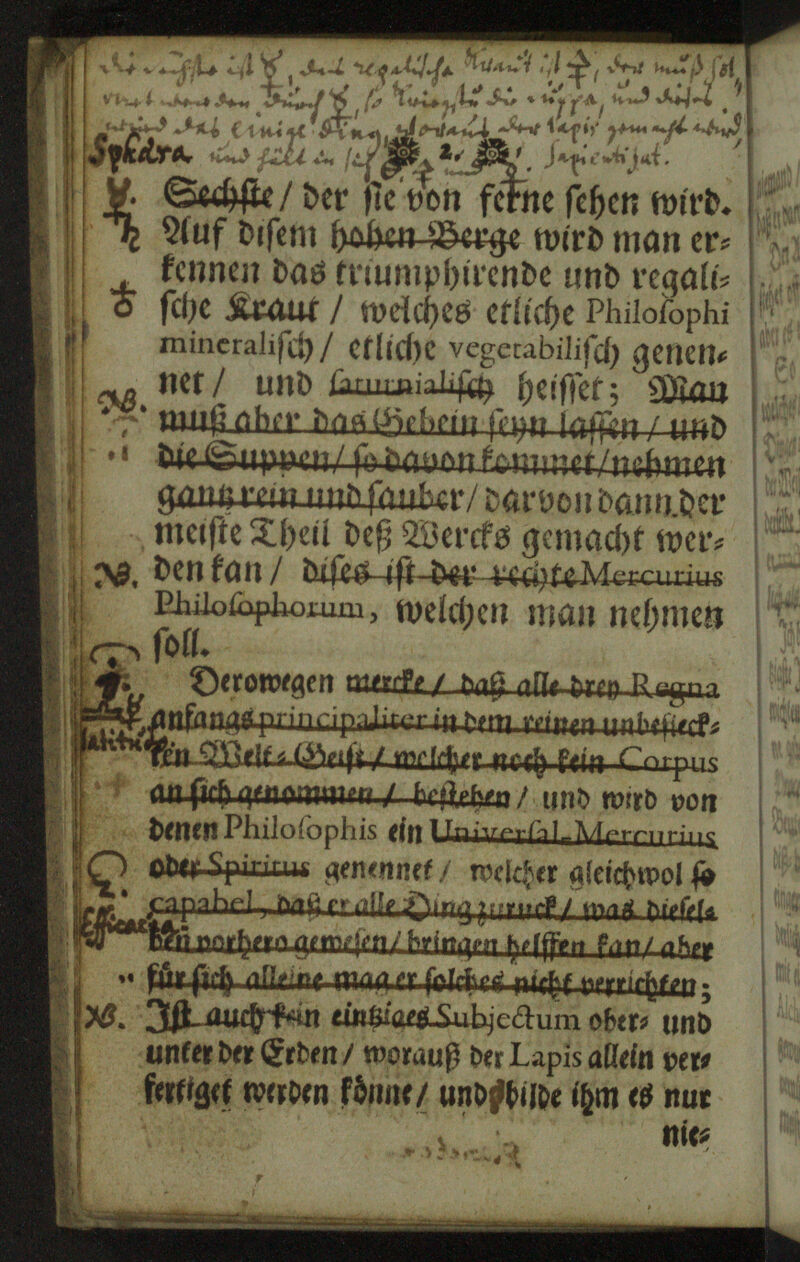 ist ☿, regalische ist ♀, muß
☿, so und
das einige Ding lapis
Sphæra und fält in Sapienti sat.
☿. Sechste / der sie von ferne sehen wird.
♄ Auf disem hohen Berge wird man er⸗
kennen das triumphirende und regali⸗
♁ sche Kraut / welches etliche Philosophi
mineralisch / etliche vegetabilisch genen⸗
NB. net / und saturnialisch heisset; Man
muß aber das Gebein seyn lassen / und
die Suppen / so davon kommet / nehmen
gantz rein und sauber / darvon dann der
meiste Theil deß Wercks gemacht wer⸗
NB. den kan / dises ist der rechte Mercurius
Philosophorum, welchen man nehmen
soll.
Derowegen mercke / daß alle drey Regna
anfangs principaliter in dem reinen unbefleck⸗
ten Welt⸗Geist / welcher noch kein Corpus
an sich genommen / bestehen / und wird von
denen Philosophis ein Universal-Mercurius
oder Spiritus genennet / welcher gleichwol so
capabel, daß er alle Ding zuruck / was dieselb
ben vorhero gewesen / bringen helffen kan / aber
für sich alleine mag er solches nicht verrichten;
NB. Ist auch kein eintziges Subjectum ober⸗ und
unter der Erden / worauß der Lapis allein ver⸗
fertiget werden könne / und bilde ihm es nur
nie⸗